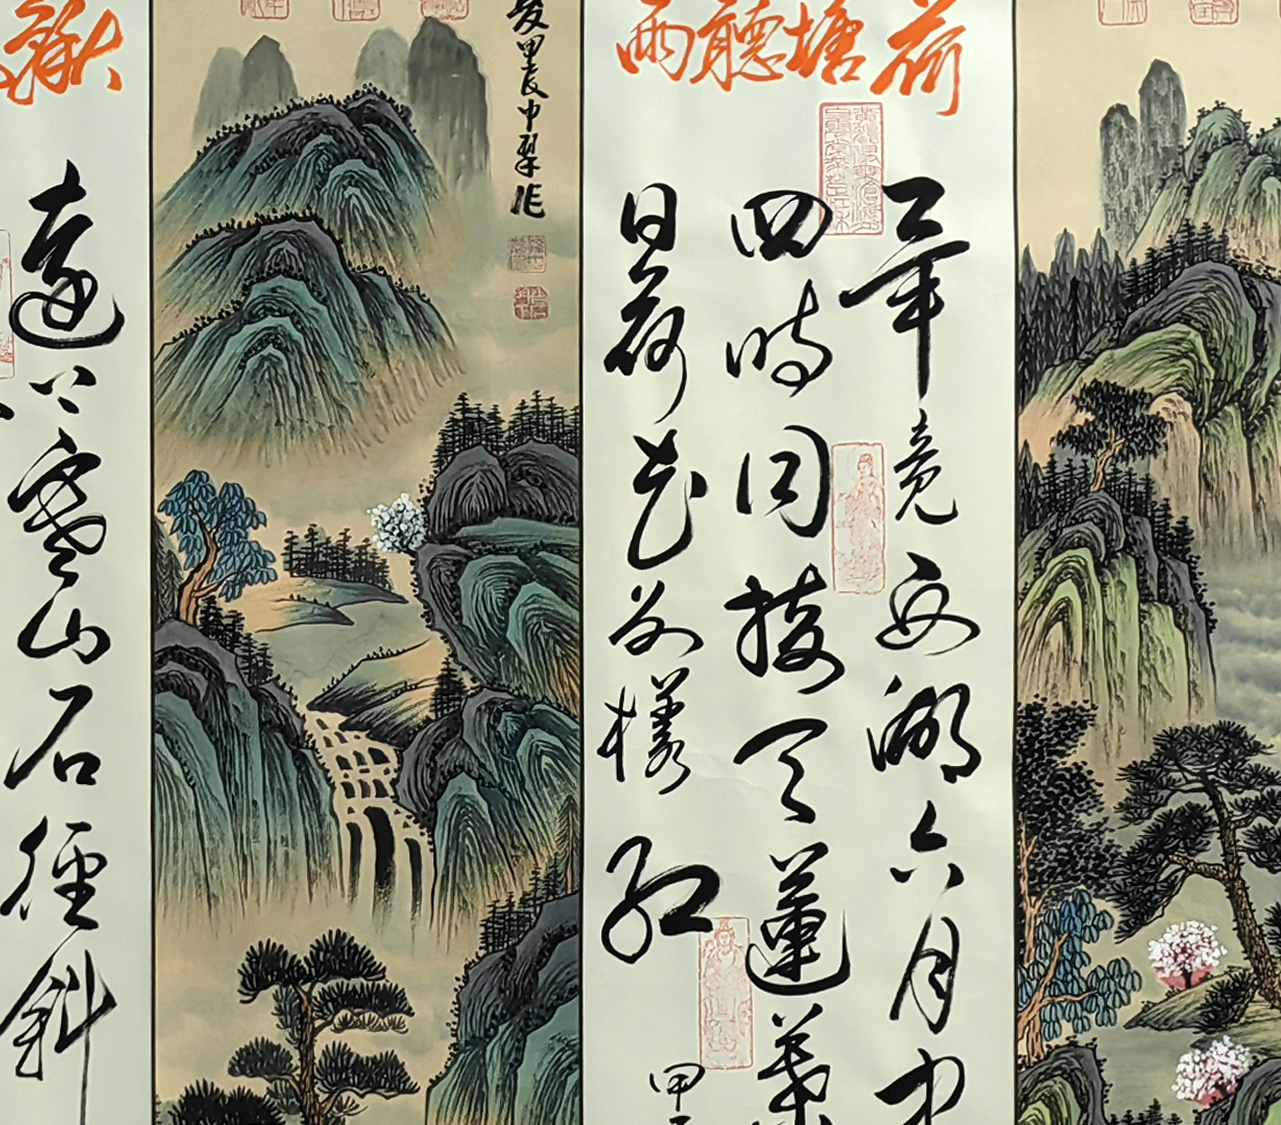 荷塘聽雨
畢竟西湖六月中
四時同接天蓮葉
日荷花別樣紅
甲
甲辰中翠作
遠上寒山石徑斜